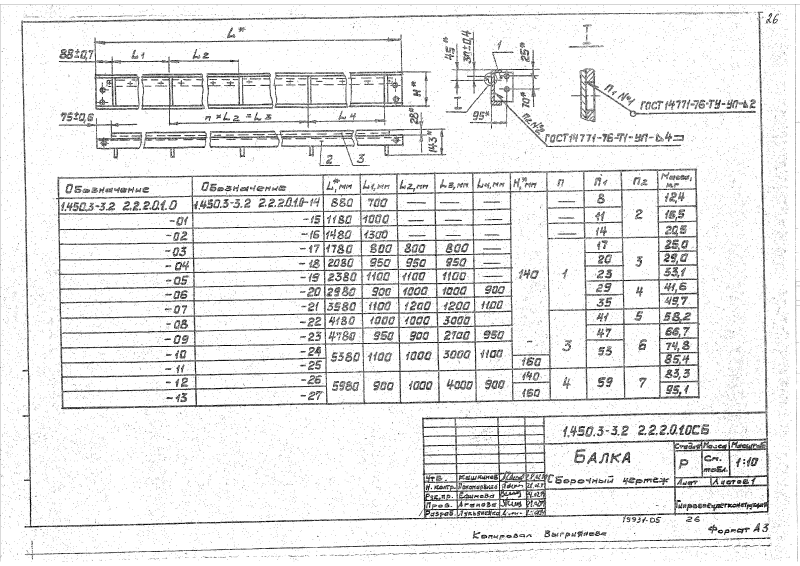 26
L*
85±0,7
L1
L2
H*
n×L2=L3
L4
75±0,6
28*
143*
2
3
45*
30±0,4
1
25*
I
95*
70*
I
п. №1
ГОСТ 14771-76-ТУ-УП-Δ2
п. №2
ГОСТ 14771-76-Т1-УП-Δ4
Обозначение Обозначение L*, мм L1, мм L2, мм L3, мм L4, мм H*, мм n n1 n2 Масса, кг
1.450.3-3.2 2.2.2.0.1.0 1.450.3-3.2 2.2.2.0.1.0-14 880 700 — — — 140 — 8 2 12,4
-01 -15 1180 1000 — — — — 11 16,5
-02 -16 1480 1300 — — — — 14 20,6
-03 -17 1780 800 800 800 — 1 17 3 25,0
-04 -18 2080 950 950 950 — 20 29,0
-05 -19 2380 1100 1100 1100 — 23 53,1
-06 -20 2980 900 1000 1000 900 29 4 41,6
-07 -21 3580 1100 1200 1200 1100 35 49,7
-08 -22 4180 1000 1000 3000 3 41 5 58,2
-09 -23 4780 950 900 2700 950 47 6 66,7
-10 -24 5380 1100 1000 3000 1100 53 74,8
-11 -25 160 85,4
-12 -26 5980 900 1000 4000 900 140 4 59 7 83,3
-13 -27 160 95,1
1.450.3-3.2 2.2.2.0.1.0СБ
БАЛКА
Сборочный чертеж
Стадия Масса Масштаб
Р См. табл. 1:10
Лист Листов 1
Утв.
Н. контр.
Рук. пр. Ефимова
Пров. Агапова
Разраб.
19931-05 26
Копировал Выгриянова
Формат А3